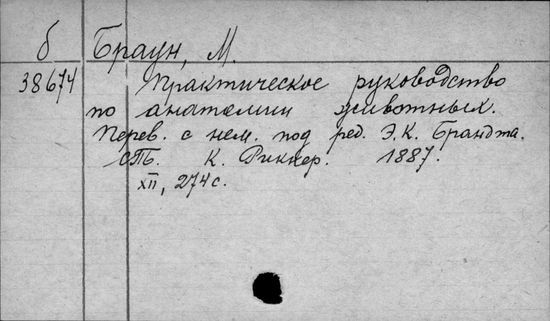 б Браун, М.
38674 Практическое руководство
по анатомии животных.
Перев. с нем. под ред. Э.К. Брандта.
СПб. К. Риккер. 1887.
XII, 274 с.